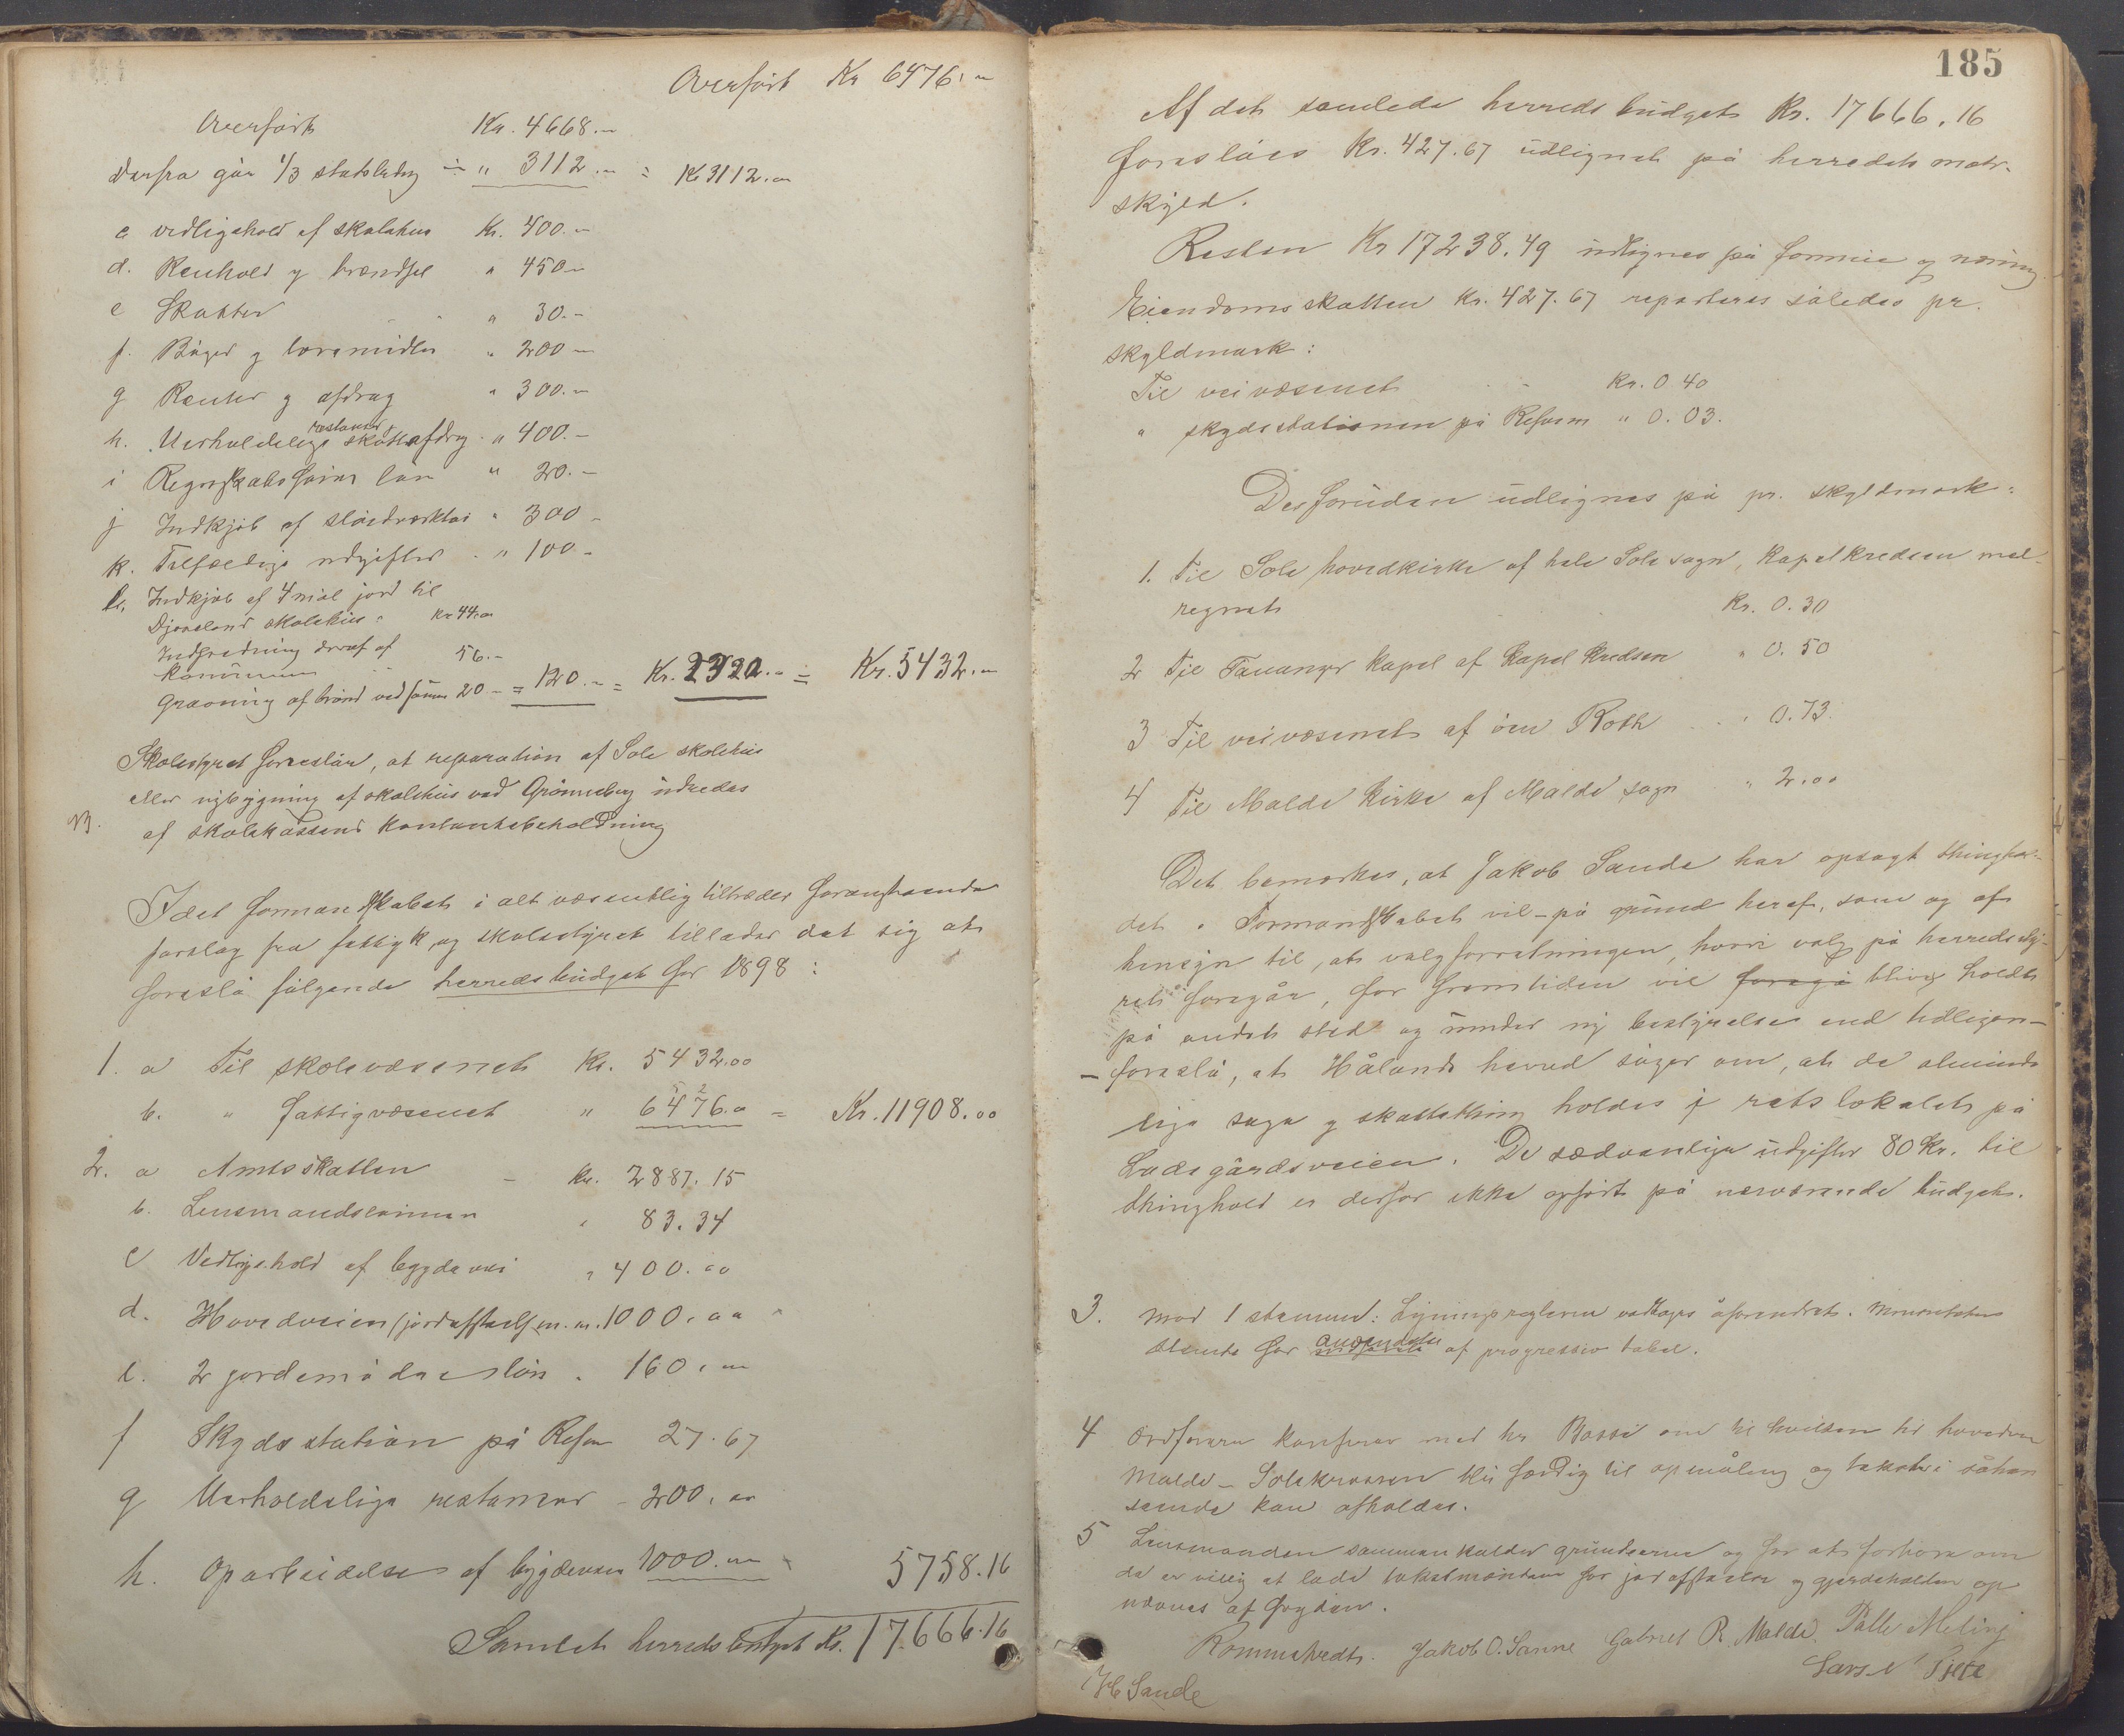 Overført Kr 6476.-
Overført Kr. 4668.-
derfra går 1/3 statsbidrag ÷ " 3112.- = Kr 3112.00
c vedligehold af skolehus Kr. 400.-
d. Renhold og brændsel " 450.-
e Skatter " 30.-
f. Bøger og læremidler " 200.-
g Renter og afdrag " 300.-
h. Uerholdelige restancer skatteafdrag " 400.-
i Regnskabsførers løn " 20.-
j Indkjøb af sløidværktøi " 300.-
k. Tilfældige udgifter " 100.-
l. Indkjøb af 4 mål jord til
Djøseland skolehus Kr 44.00
Indfredning deraf af
kommunen 56.-
Gravning af brønd ved samme 20.- = 120.- = Kr. 2320.- = Kr. 5432.-
Skolestyret foreslår, at reparation af Sole skolehus
eller nybygning af skolehus ved Grønneberg udredes
af skolekassens kontantebeholdning
Idet formandskabet i alt væsentlig tiltræder foranstaaende
forslag fra fattigk. og skolestyret tillader det sig at
foreslå følgende herredsbudget for 1898:
1. a Til skolevæsenet Kr. 5432.00
b. " fattigvæsenet " 6476.- = Kr. 11908.00
2. a Amtsskatten Kr. 2887.15
b. Lensmandslønnen " 83.34
c Vedligehold af bygdevei " 400.00
d. Hovedveien (jordafståelse m.m. 1000.00
e. 2 jordemødres løn " 160.00
f Skydsstation på Refsn 27.67
g Uerholdelige restancer - 200.00
h. Oparbeidelse af bygdeveier 1000.00 5758.16
Samlet herredsbudget Kr. 17.666.16
185
Af det samlede herredsbudget Kr. 17666.16
foreslåes Kr. 427.67 udlignet på herredets matr.
skyld.
Resten Kr 17238.49 udlignes på formue og næring
Eiendomsskatten Kr. 427.67 reparteres således pr.
skyldmark:
Til veivæsenet Kr. 0 40
" skydsstationen på Refsn " 0.03.
Desforuden udlignes på pr. skyldmark:
1. Til Sole hovedkirke af hele Sole sogn, kapelkredsen med-
regnet Kr. 0.30
2 Til Tananger kapel af kapelkredsen " 0.50
3 Til veivæsenet af øen Roth " 0.73
4 Til Malde kirke af Malde sogn " 2.00
Det bemærkes, at Jakob Sande har opsagt thinghol-
det. Formandskabet vil - på grund heraf, som og af
hensyn til, at valgforretningen, hvori valg på herredssty-
ret foregår, for fremtiden vil foregå blive holdt
på andet sted og under ny bestyrelse end tidligere -
- foreslå, at Hålands herred søger om, at de alminde
lige sage og skattething holdes i retslokalet på
Ladegårdsveien. De sædvanlige udgifter 80 Kr. til
thinghold er derfor ikke opført på nærværende budget.
3. Mod 1 stemme: Ligningsreglerne vedtages uforandret. Minoriteten
stemte for anvendelse af progressiv tabel.
4 Ordføreren konfererer med hr Bassøe om til hvilken tid hovedvei
Malde - Solekrossen bli færdig til opmåling og takst i såhen
seende kan afholdes.
5 Lensmanden sammenkalder grundeierne og for at forhøre om
de er villig at lade takstmændene for jordafståelse og gjerdeholdet op
nævnes af fogden.
Rommetvedt. Jakob O. Sømme Gabriel R. Malde. Palle Meling
Lars N Tjelte
Sande